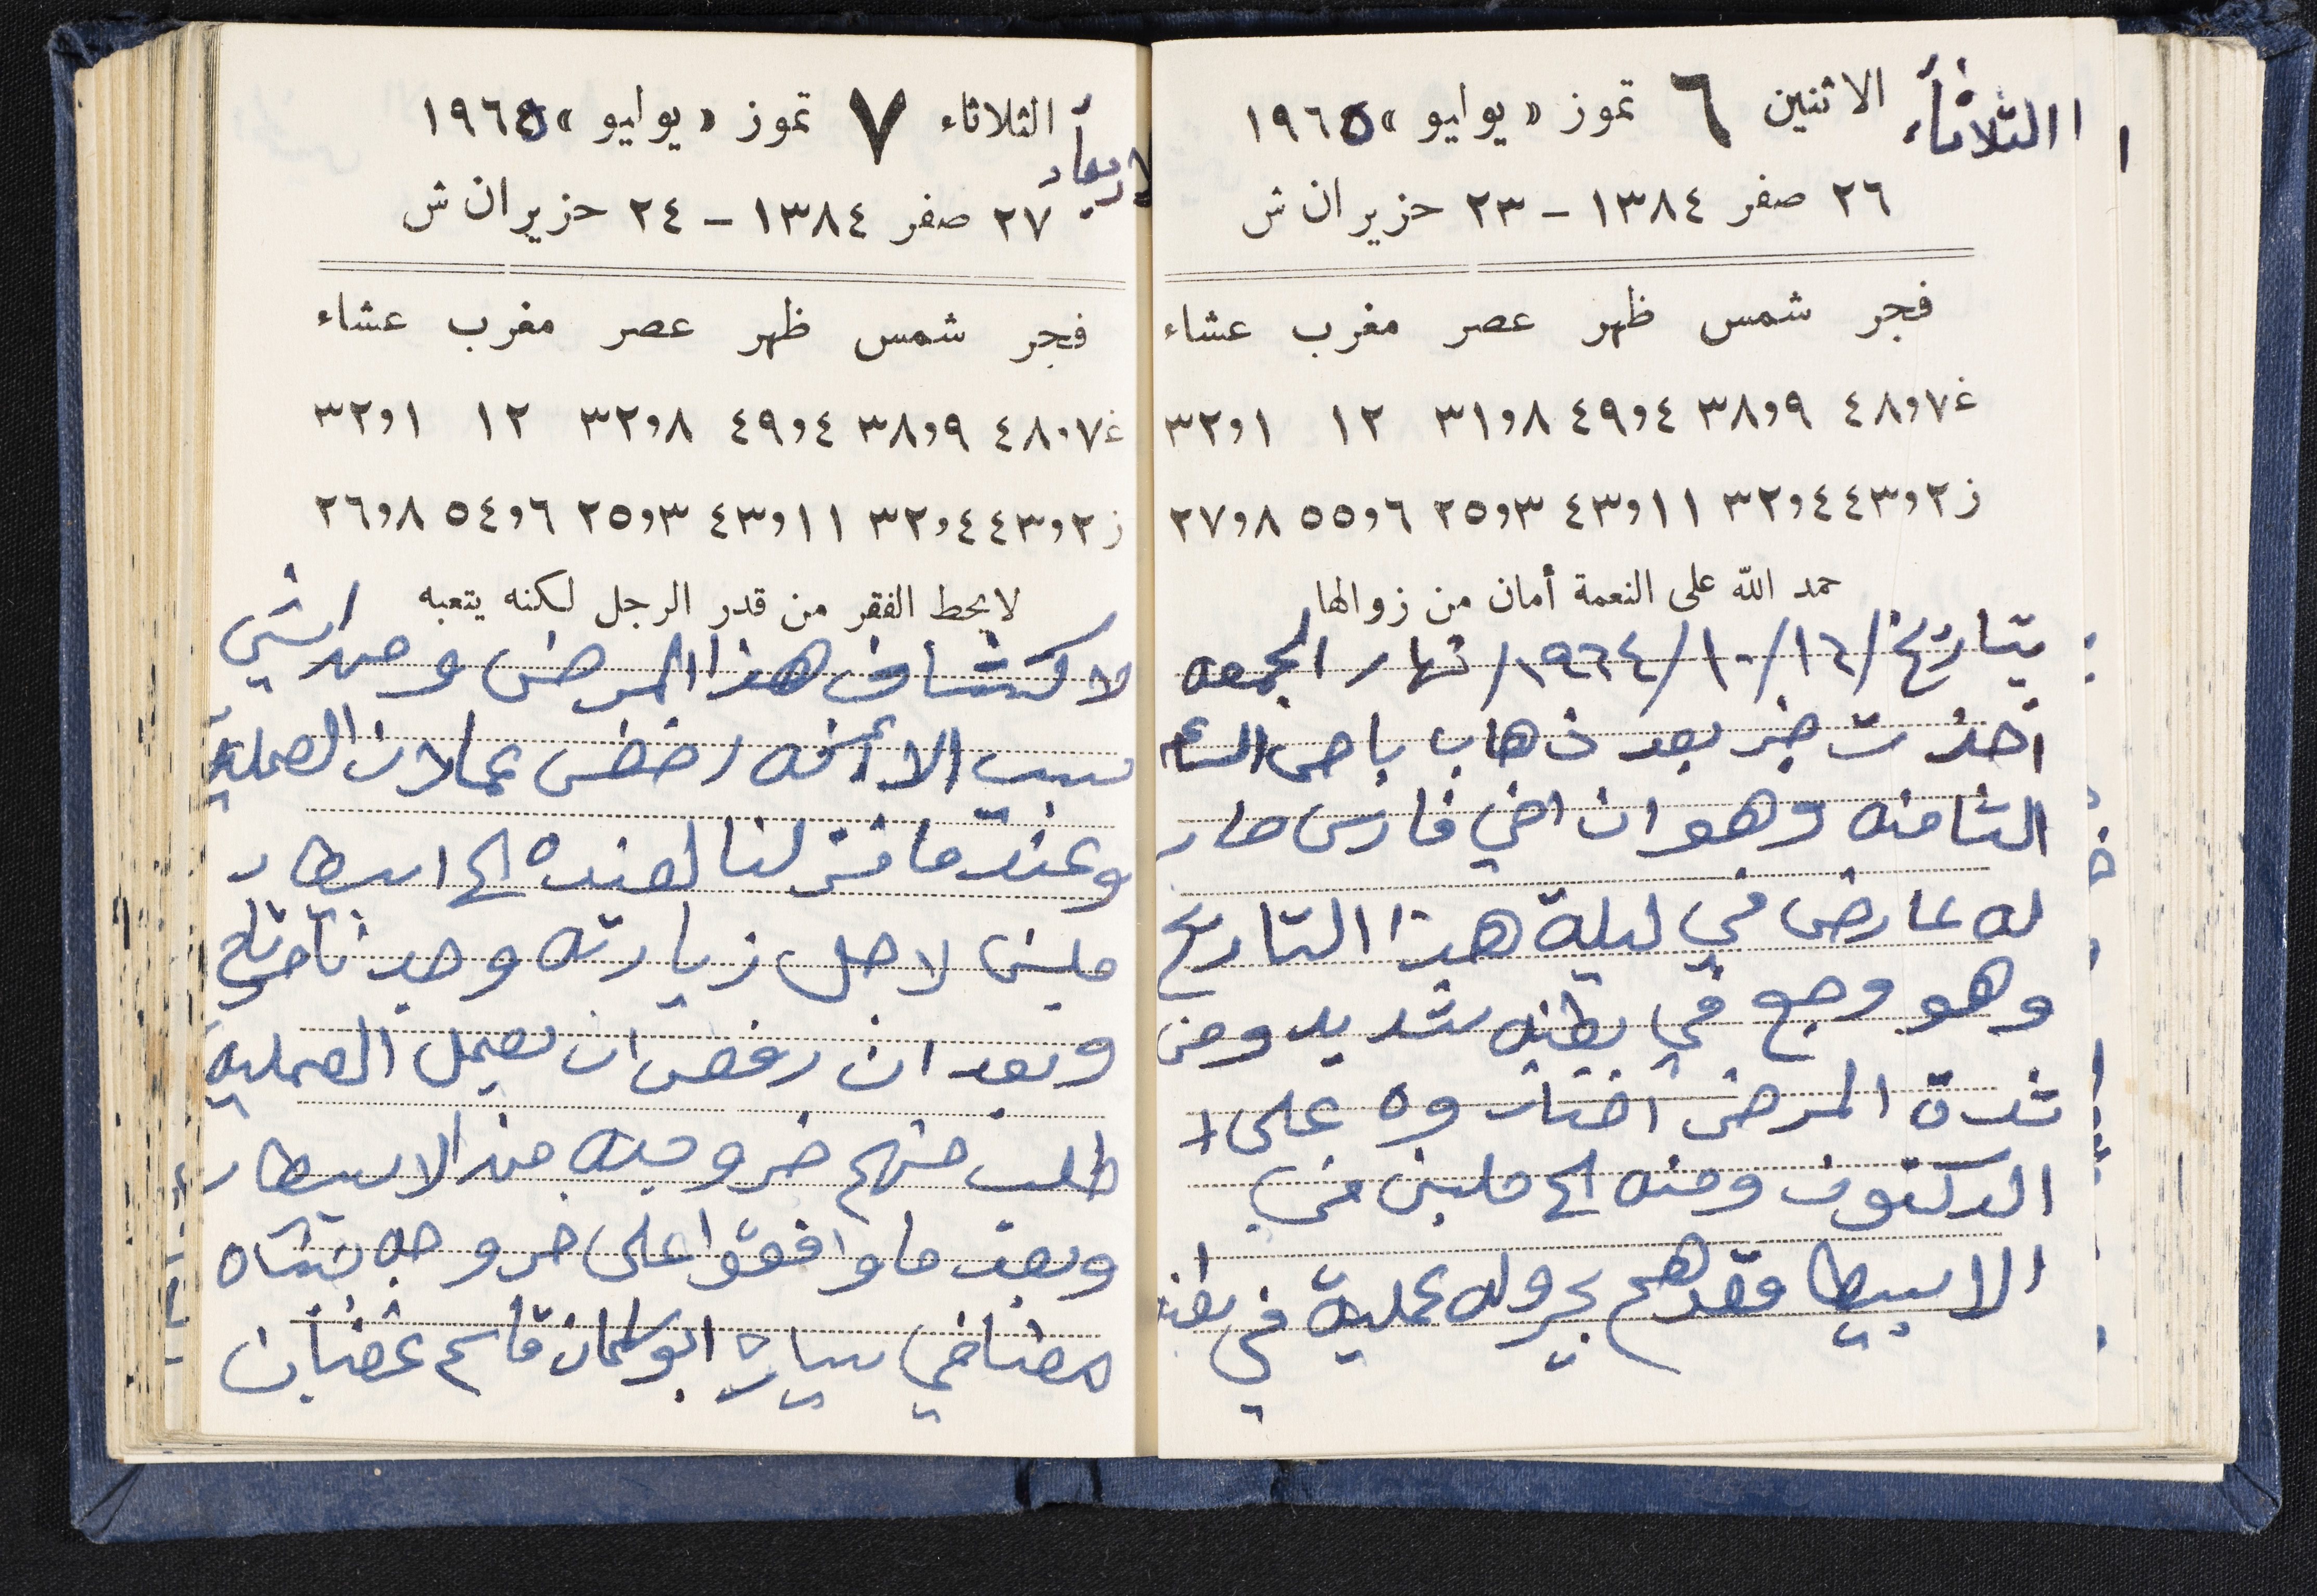 الثلاثاء الاثنين ٦ تموز «يوليو» ١٩٦٥
٢٦ صفر ١٣٨٤ – ٢٣ حزيران ش
فجر شمس ظهر عصر مغرب عشاء
غ ٤٨٫٧ ٣٨٫٩ ٤٩٫٤ ٣١٫٨ ١٢ ٣٢٫١
ز ٤٣٫٢ ٣٢٫٤ ٤٣٫١١ ٢٥٫٣ ٥٥٫٦ ٢٧٫٨
حمد الله على النعمة أمان من زوالها
بتاريخ /١٦/١٠/١٩٦٤/ نهار الجمعه
اخذت خبر بعد ذهاب باص
الثامنه وهو ان اخي فارس صار
له عارض في ليلة هذا التاريخ
وهو وجع في بطنه شديد ومن
شدة المرض اخذوه على ا
الدكتور ومنه الى في
الاسبيطا فقدهم يجروله عملية في بطنه
اربعاء الثلاثاء ٧ تموز «يوليو» ١٩٦٥
٢٧ صفر ١٣٨٤ – ٢٤ حزيران ش
فجر شمس ظهر عصر مغرب عشاء
غ ٤٨٫٧ ٣٨٫٩ ٤٩٫٤ ٣٢٫٨ ١٢ ٣٢٫١
ز ٤٣٫٢ ٣٢٫٤ ٤٣٫١١ ٢٥٫٣ ٥٤٫٦ ٢٦٫٨
لا يحط الفقر من قدر الرجل لكنه يتعبه
لاكتشاف هذا المرض ومن
سبب الا انه رفض عملان العملية
وعندما نزلنا لعنده الى اسبيطار
ملبس لاجل زيارته وجدناه مرتاح
وبعد ان رفض ان يعمل العملية
طلب منهم خروجه من الاسبيطار
وبعد ما وافقوا على خروجه جبناه
معنا في سيارة ابو سلمان قاسم غضبان